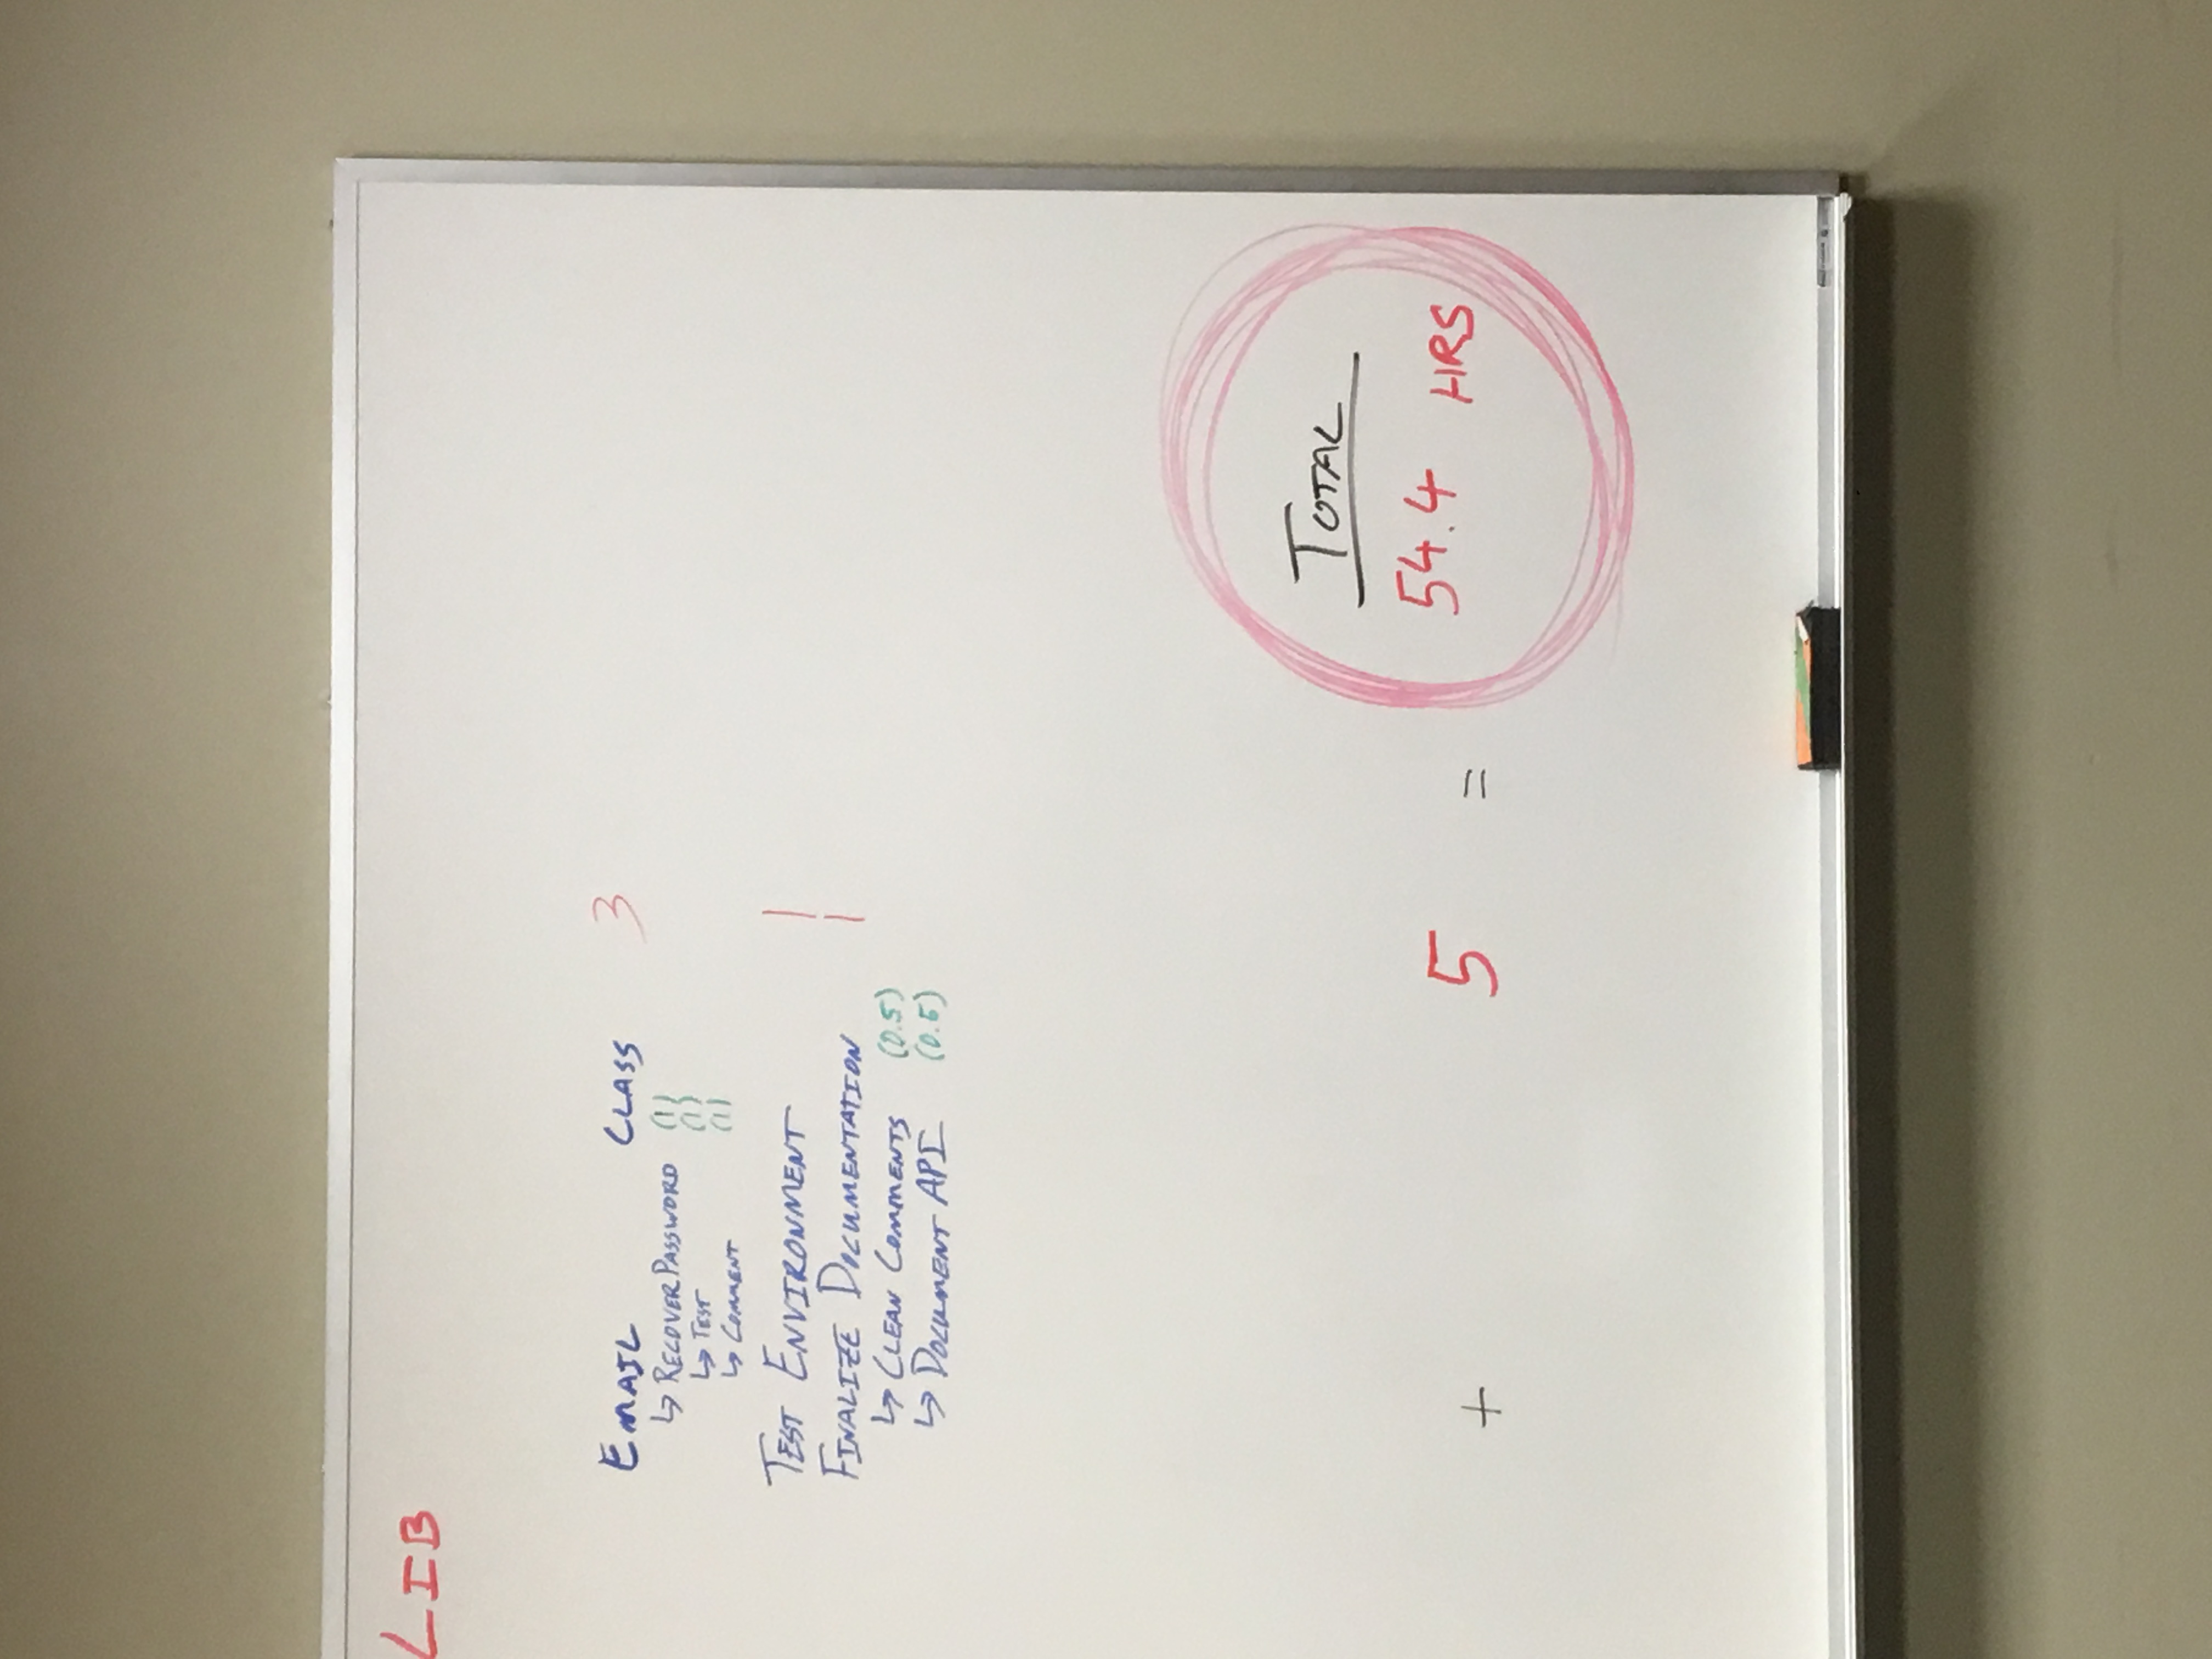 LIB
EMAIL CLASS 3
↳ RECOVERPASSWORD (1)
↳ TEST (1)
↳ COMMENT (1)
TEST ENVIRONMENT 1
FINALIZE DOCUMENTATION 1
↳ CLEAN COMMENTS (0.5)
↳ DOCUMENT API (0.5)
TOTAL
+ 5 = 54.4 HRS